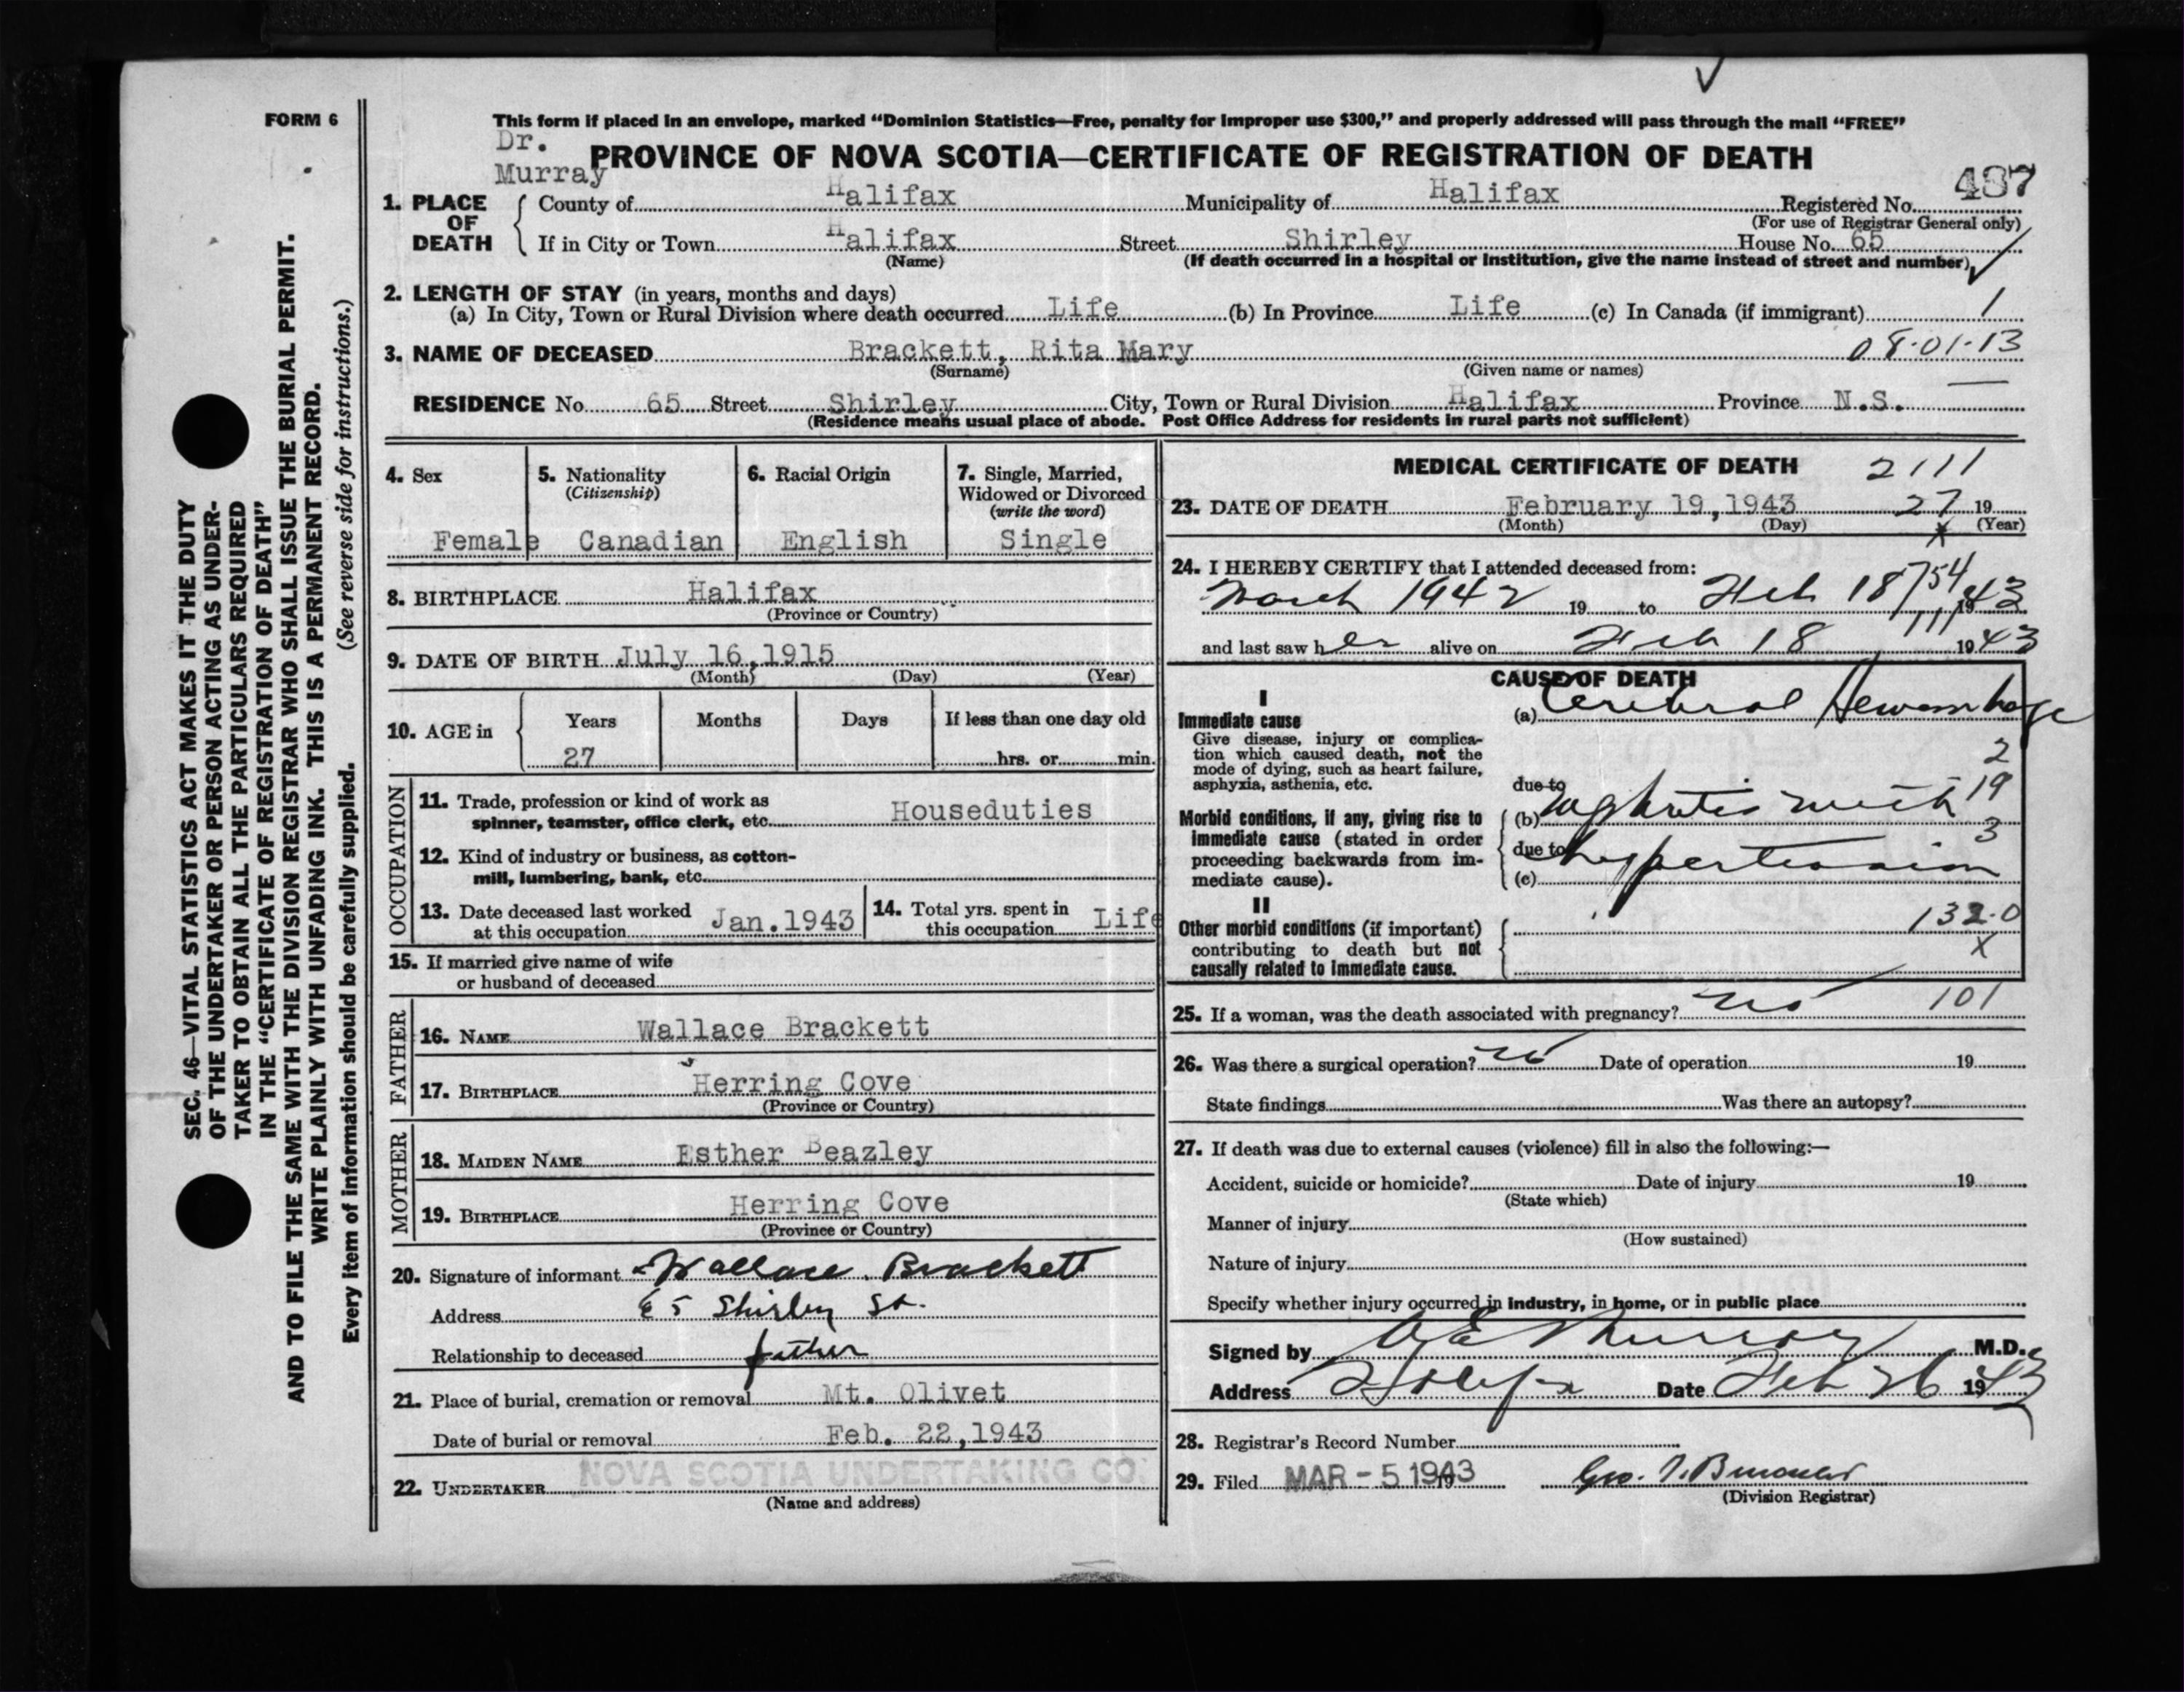 FORM 6
This form if placed in an envelope, marked “Dominion Statistics—Free, penalty for improper use $300,” and properly addressed will pass through the mail “FREE”
Dr.
Murray
PROVINCE OF NOVA SCOTIA—CERTIFICATE OF REGISTRATION OF DEATH
487
1. PLACE OF DEATH { County of Halifax Municipality of Halifax Registered No.
(For use of Registrar General only)
If in City or Town Halifax Street Shirley House No. 65
(Name) (If death occurred in a hospital or institution, give the name instead of street and number)
2. LENGTH OF STAY (in years, months and days)
(a) In City, Town or Rural Division where death occurred Life (b) In Province Life (c) In Canada (if immigrant) 1
3. NAME OF DECEASED Brackett, Rita Mary 08-01-13
(Surname) (Given name or names)
RESIDENCE No. 65 Street Shirley City, Town or Rural Division Halifax Province N.S.
(Residence means usual place of abode. Post Office Address for residents in rural parts not sufficient)
4. Sex 5. Nationality 6. Racial Origin 7. Single, Married,
(Citizenship) Widowed or Divorced
(write the word)
Female Canadian English Single
8. BIRTHPLACE Halifax
(Province or Country)
9. DATE OF BIRTH July 16,1915
(Month) (Day) (Year)
10. AGE in { Years Months Days If less than one day old
27 hrs. or min.
OCCUPATION
11. Trade, profession or kind of work as
spinner, teamster, office clerk, etc. Houseduties
12. Kind of industry or business, as cotton-
mill, lumbering, bank, etc.
13. Date deceased last worked
at this occupation Jan.1943
14. Total yrs. spent in
this occupation Life
15. If married give name of wife
or husband of deceased
FATHER
16. NAME Wallace Brackett
17. BIRTHPLACE Herring Cove
(Province or Country)
MOTHER
18. MAIDEN NAME Esther Beazley
19. BIRTHPLACE Herring Cove
(Province or Country)
20. Signature of informant Wallace Brackett
Address 65 Shirley St.
Relationship to deceased father
21. Place of burial, cremation or removal Mt. Olivet
Date of burial or removal Feb. 22,1943
22. UNDERTAKER NOVA SCOTIA UNDERTAKING CO.
(Name and address)
MEDICAL CERTIFICATE OF DEATH 2111
23. DATE OF DEATH February 19,1943 27 19
(Month) (Day) (Year)
24. I HEREBY CERTIFY that I attended deceased from:
March 1942 19 to Feb 18 1943
754
111
and last saw her alive on Feb 18 1943
CAUSE OF DEATH
I
Immediate cause
Give disease, injury or complica-
tion which caused death, not the
mode of dying, such as heart failure,
asphyxia, asthenia, etc.
(a) Cerebral Hemorrhage
2
due to
19
Morbid conditions, if any, giving rise to
immediate cause (stated in order
proceeding backwards from im-
mediate cause).
(b) nephritis with
3
due to hypertension
(c)
II
Other morbid conditions (if important)
contributing to death but not
causally related to immediate cause.
132.0
X
25. If a woman, was the death associated with pregnancy? no 101
26. Was there a surgical operation? no Date of operation 19
State findings Was there an autopsy?
27. If death was due to external causes (violence) fill in also the following:—
Accident, suicide or homicide? Date of injury 19
(State which)
Manner of injury
(How sustained)
Nature of injury
Specify whether injury occurred in industry, in home, or in public place
Signed by Murray M.D.
Address Halifax Date Feb 26 1943
28. Registrar's Record Number
29. Filed MAR - 5 1943 19 Geo.
(Division Registrar)
SEC. 46—VITAL STATISTICS ACT MAKES IT THE DUTY
OF THE UNDERTAKER OR PERSON ACTING AS UNDER-
TAKER TO OBTAIN ALL THE PARTICULARS REQUIRED
IN THE “CERTIFICATE OF REGISTRATION OF DEATH”
AND TO FILE THE SAME WITH THE DIVISION REGISTRAR WHO SHALL ISSUE THE BURIAL PERMIT.
WRITE PLAINLY WITH UNFADING INK. THIS IS A PERMANENT RECORD.
Every item of information should be carefully supplied. (See reverse side for instructions.)